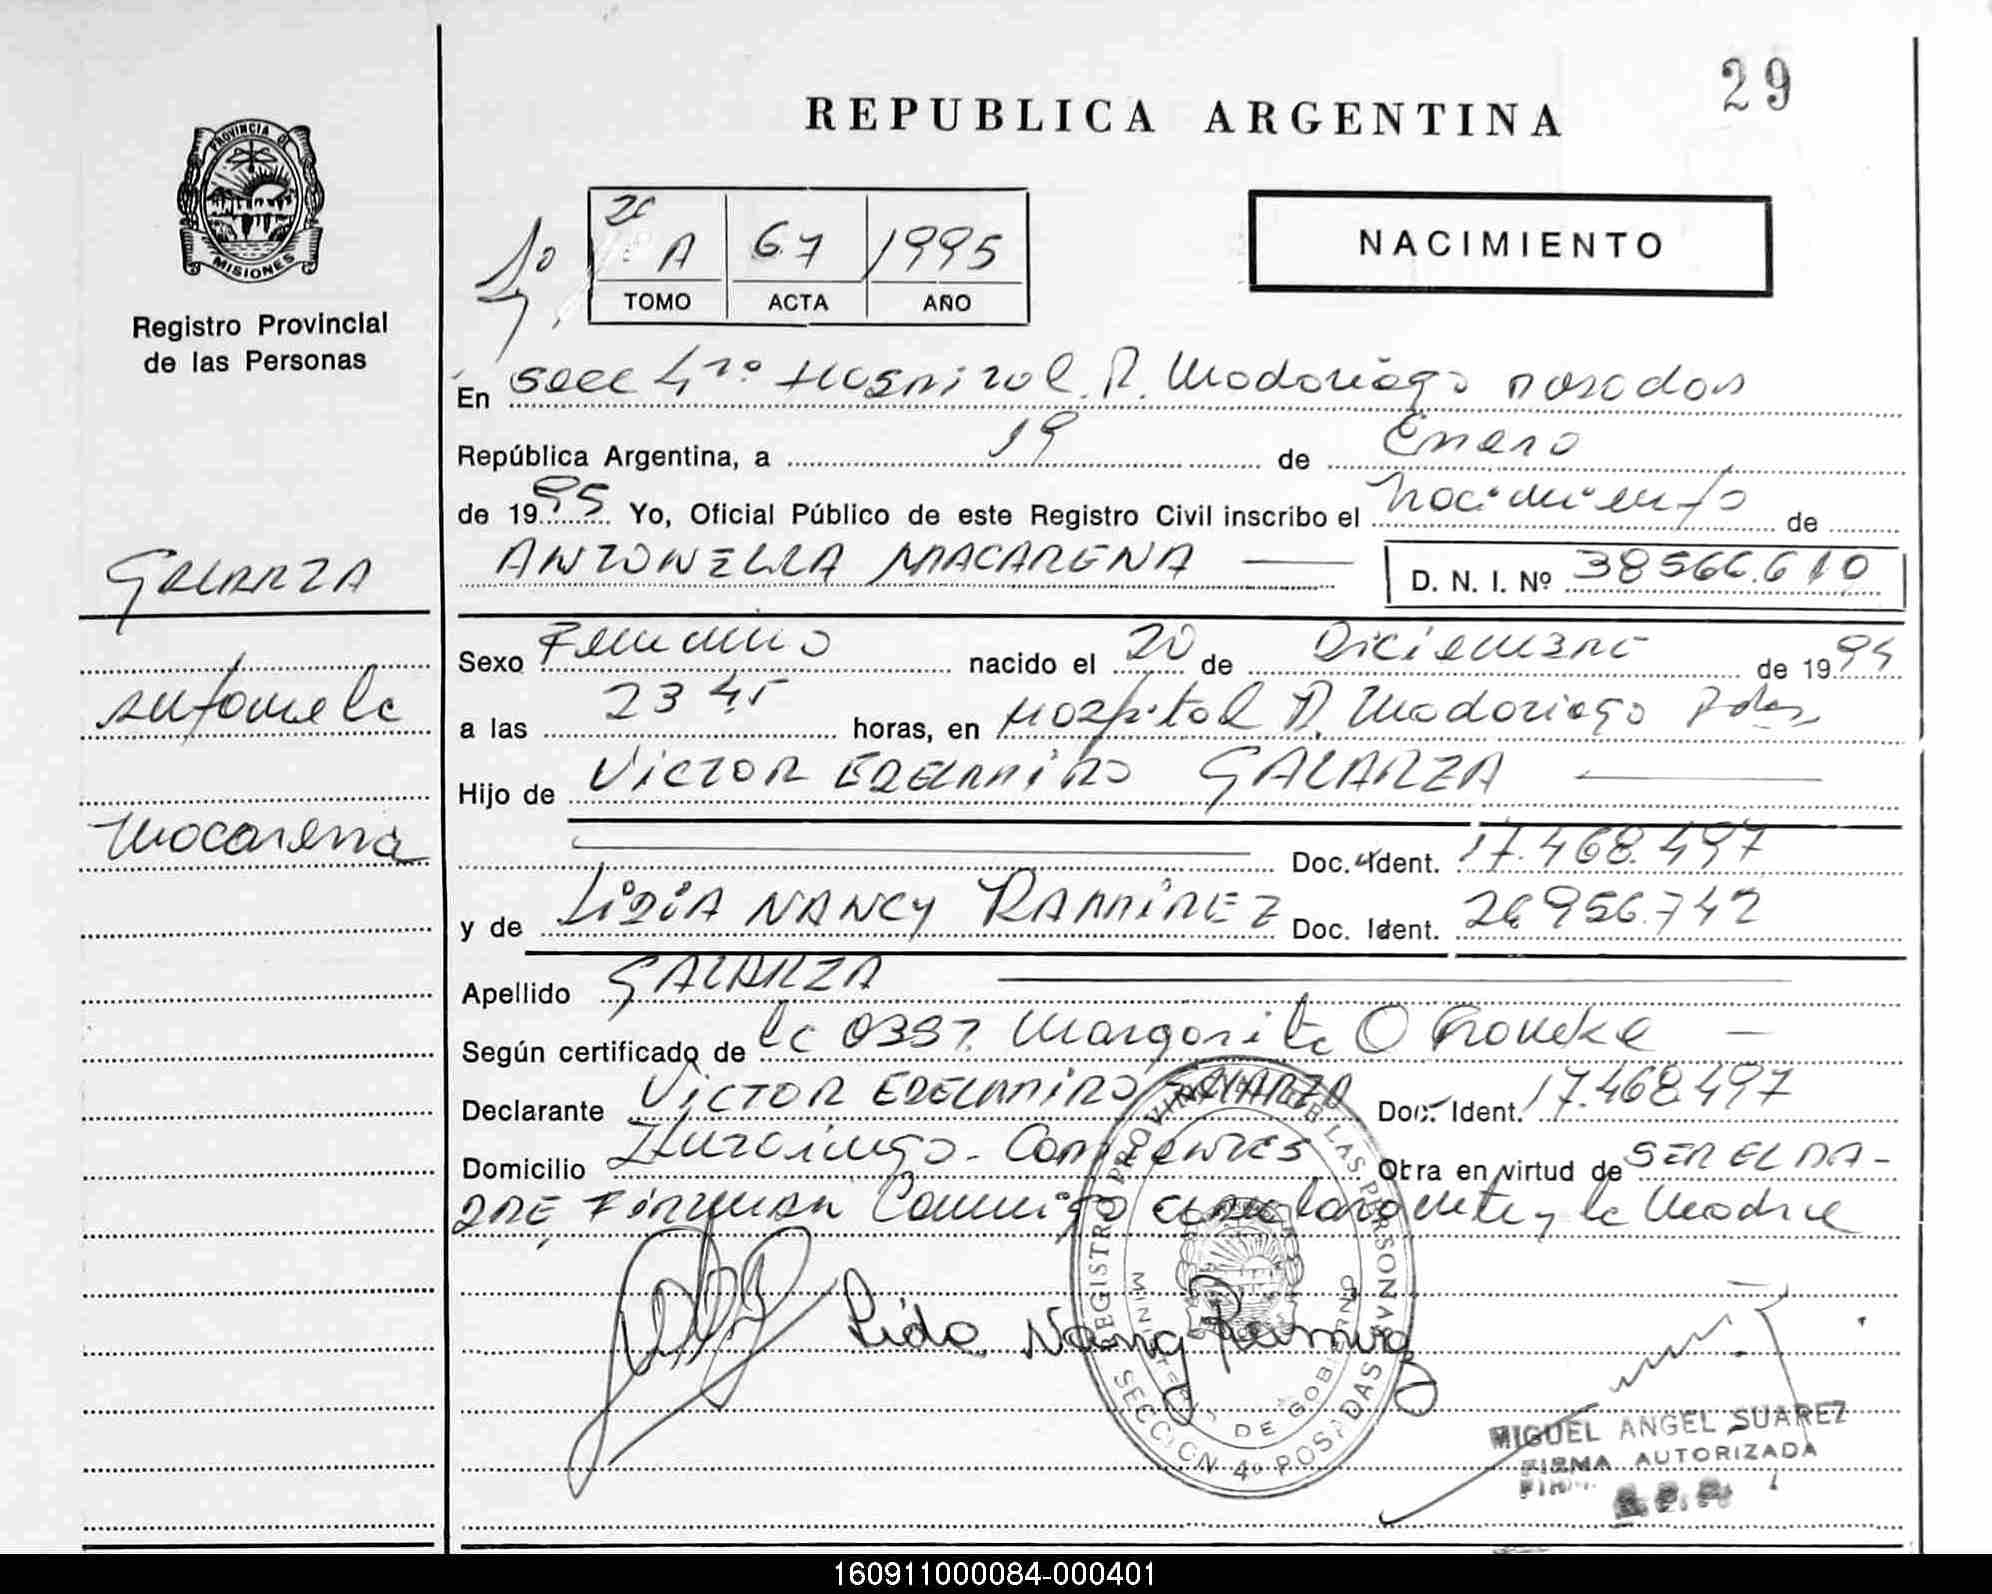 29
REPUBLICA ARGENTINA
PROVINCIA DE
MISIONES
Registro Provincial
de las Personas
1º
A 67 1995
TOMO ACTA AÑO
NACIMIENTO
En Secc 4ta. Hospital R. Madariaga Posadas
República Argentina, a 19 de Enero
de 1995 Yo, Oficial Público de este Registro Civil inscribo el nacimiento de
ANTONELLA MACARENA D. N. I. Nº 38566.610
GALARZA
Antonela
Macarena
Sexo Femenino nacido el 20 de Diciembre de 1994
a las 23 45 horas, en Hospital R. Madariaga Pdas
Hijo de VICTOR EDELMIRO GALARZA
Doc. Ident. 17.468.497
y de LIDIA NANCY RAMIREZ Doc. Ident. 26956.742
Apellido GALARZA
Según certificado de la Margarita O
Declarante VICTOR EDELMIRO GALARZA Doc. Ident. 17.468.497
Domicilio Ituzaingo - Corrientes Obra en virtud de SER EL PA-
DRE FIRMAN Conmigo y la Madre
Lida Nancy Ramirez
REGISTRO PROVINCIAL DE LAS PERSONAS
MINISTERIO DE GOBIERNO
SECCION 4º POSADAS
MIGUEL ANGEL SUAREZ
FIRMA AUTORIZADA
160911000084-000401